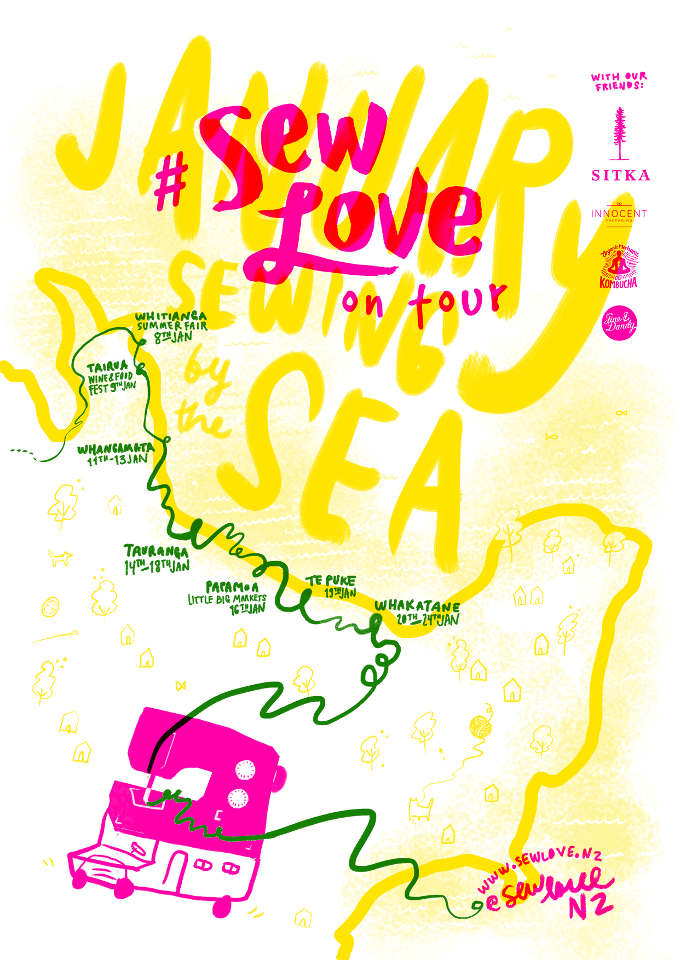 JANUARY
SEWING
by
the
SEA
#Sew
Love
on tour
WITH OUR
FRIENDS:
SITKA
INNOCENT
KOMBUCHA
Fine &
Dandy
WHITIANGA
SUMMER FAIR
8TH JAN
TAIRUA
WINE & FOOD
FEST 9TH JAN
WHANGAMATA
11TH-13TH JAN
TAURANGA
14TH-18TH JAN
PAPAMOA
LITTLE BIG MARKETS
16TH JAN
TE PUKE
19TH JAN
WHAKATANE
20TH-24TH JAN
WWW.SEWLOVE.NZ
@sewlove
NZ